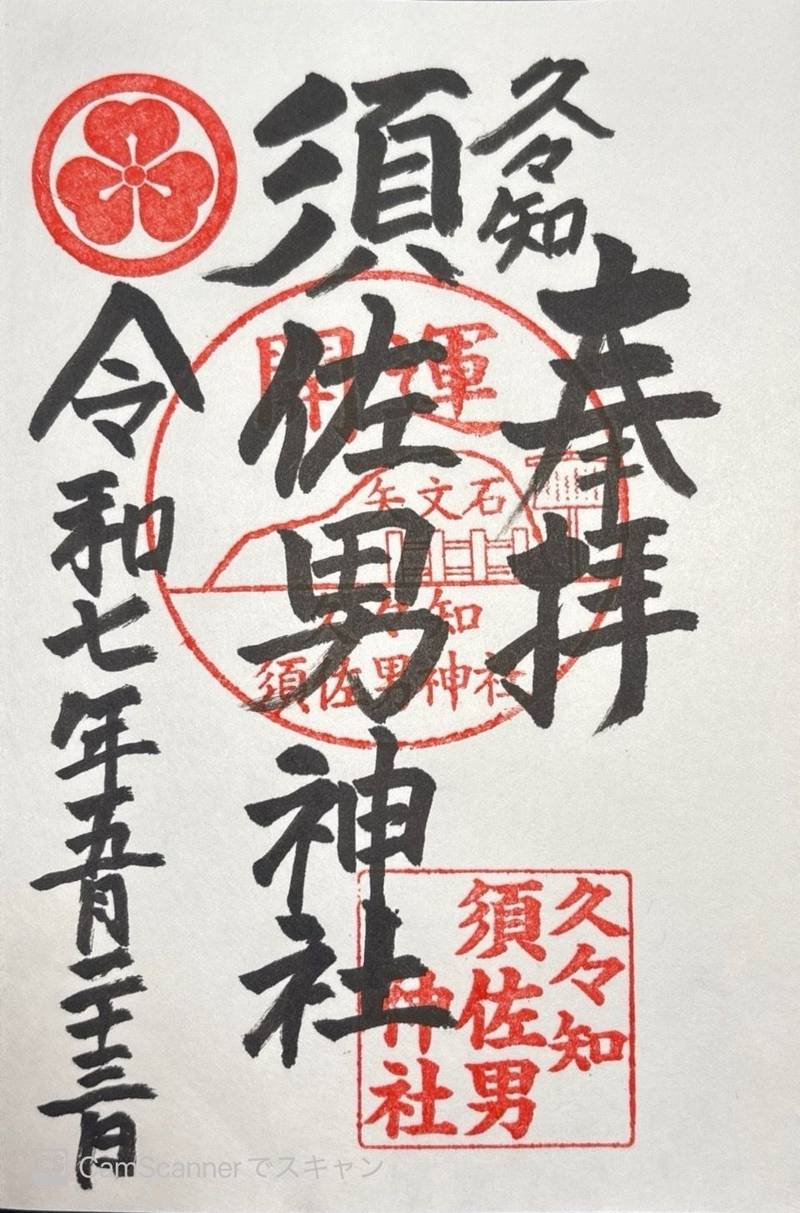 久々知
奉拝
須佐男神社
令和七年五月二十三日
開運
矢文石
久々知
須佐男神社
久々知
須佐男
神社
CamScanner でスキャン